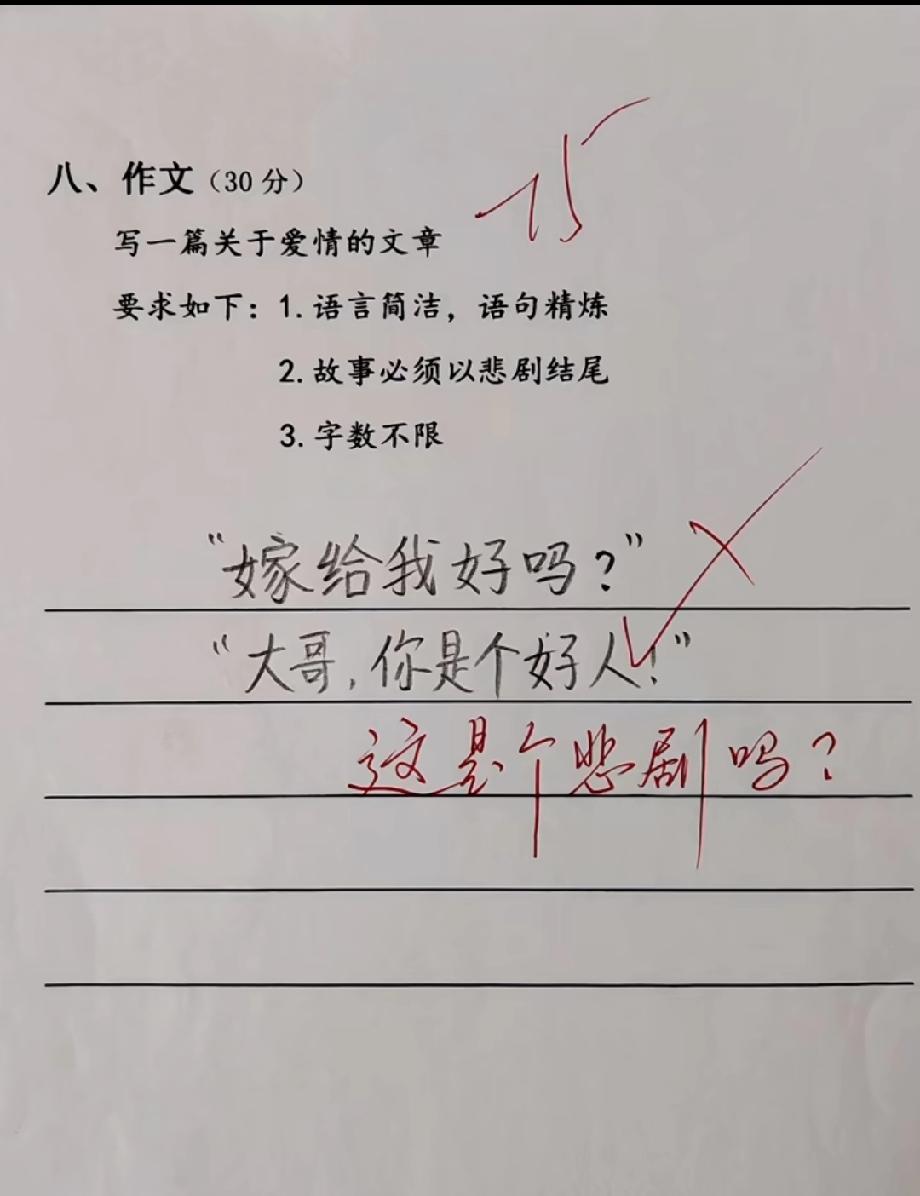 15
八、作文（30 分）
写一篇关于爱情的文章
要求如下：1.语言简洁，语句精炼
2.故事必须以悲剧结尾
3.字数不限
“嫁给我好吗？”
“大哥，你是个好人！”
这是个悲剧吗？